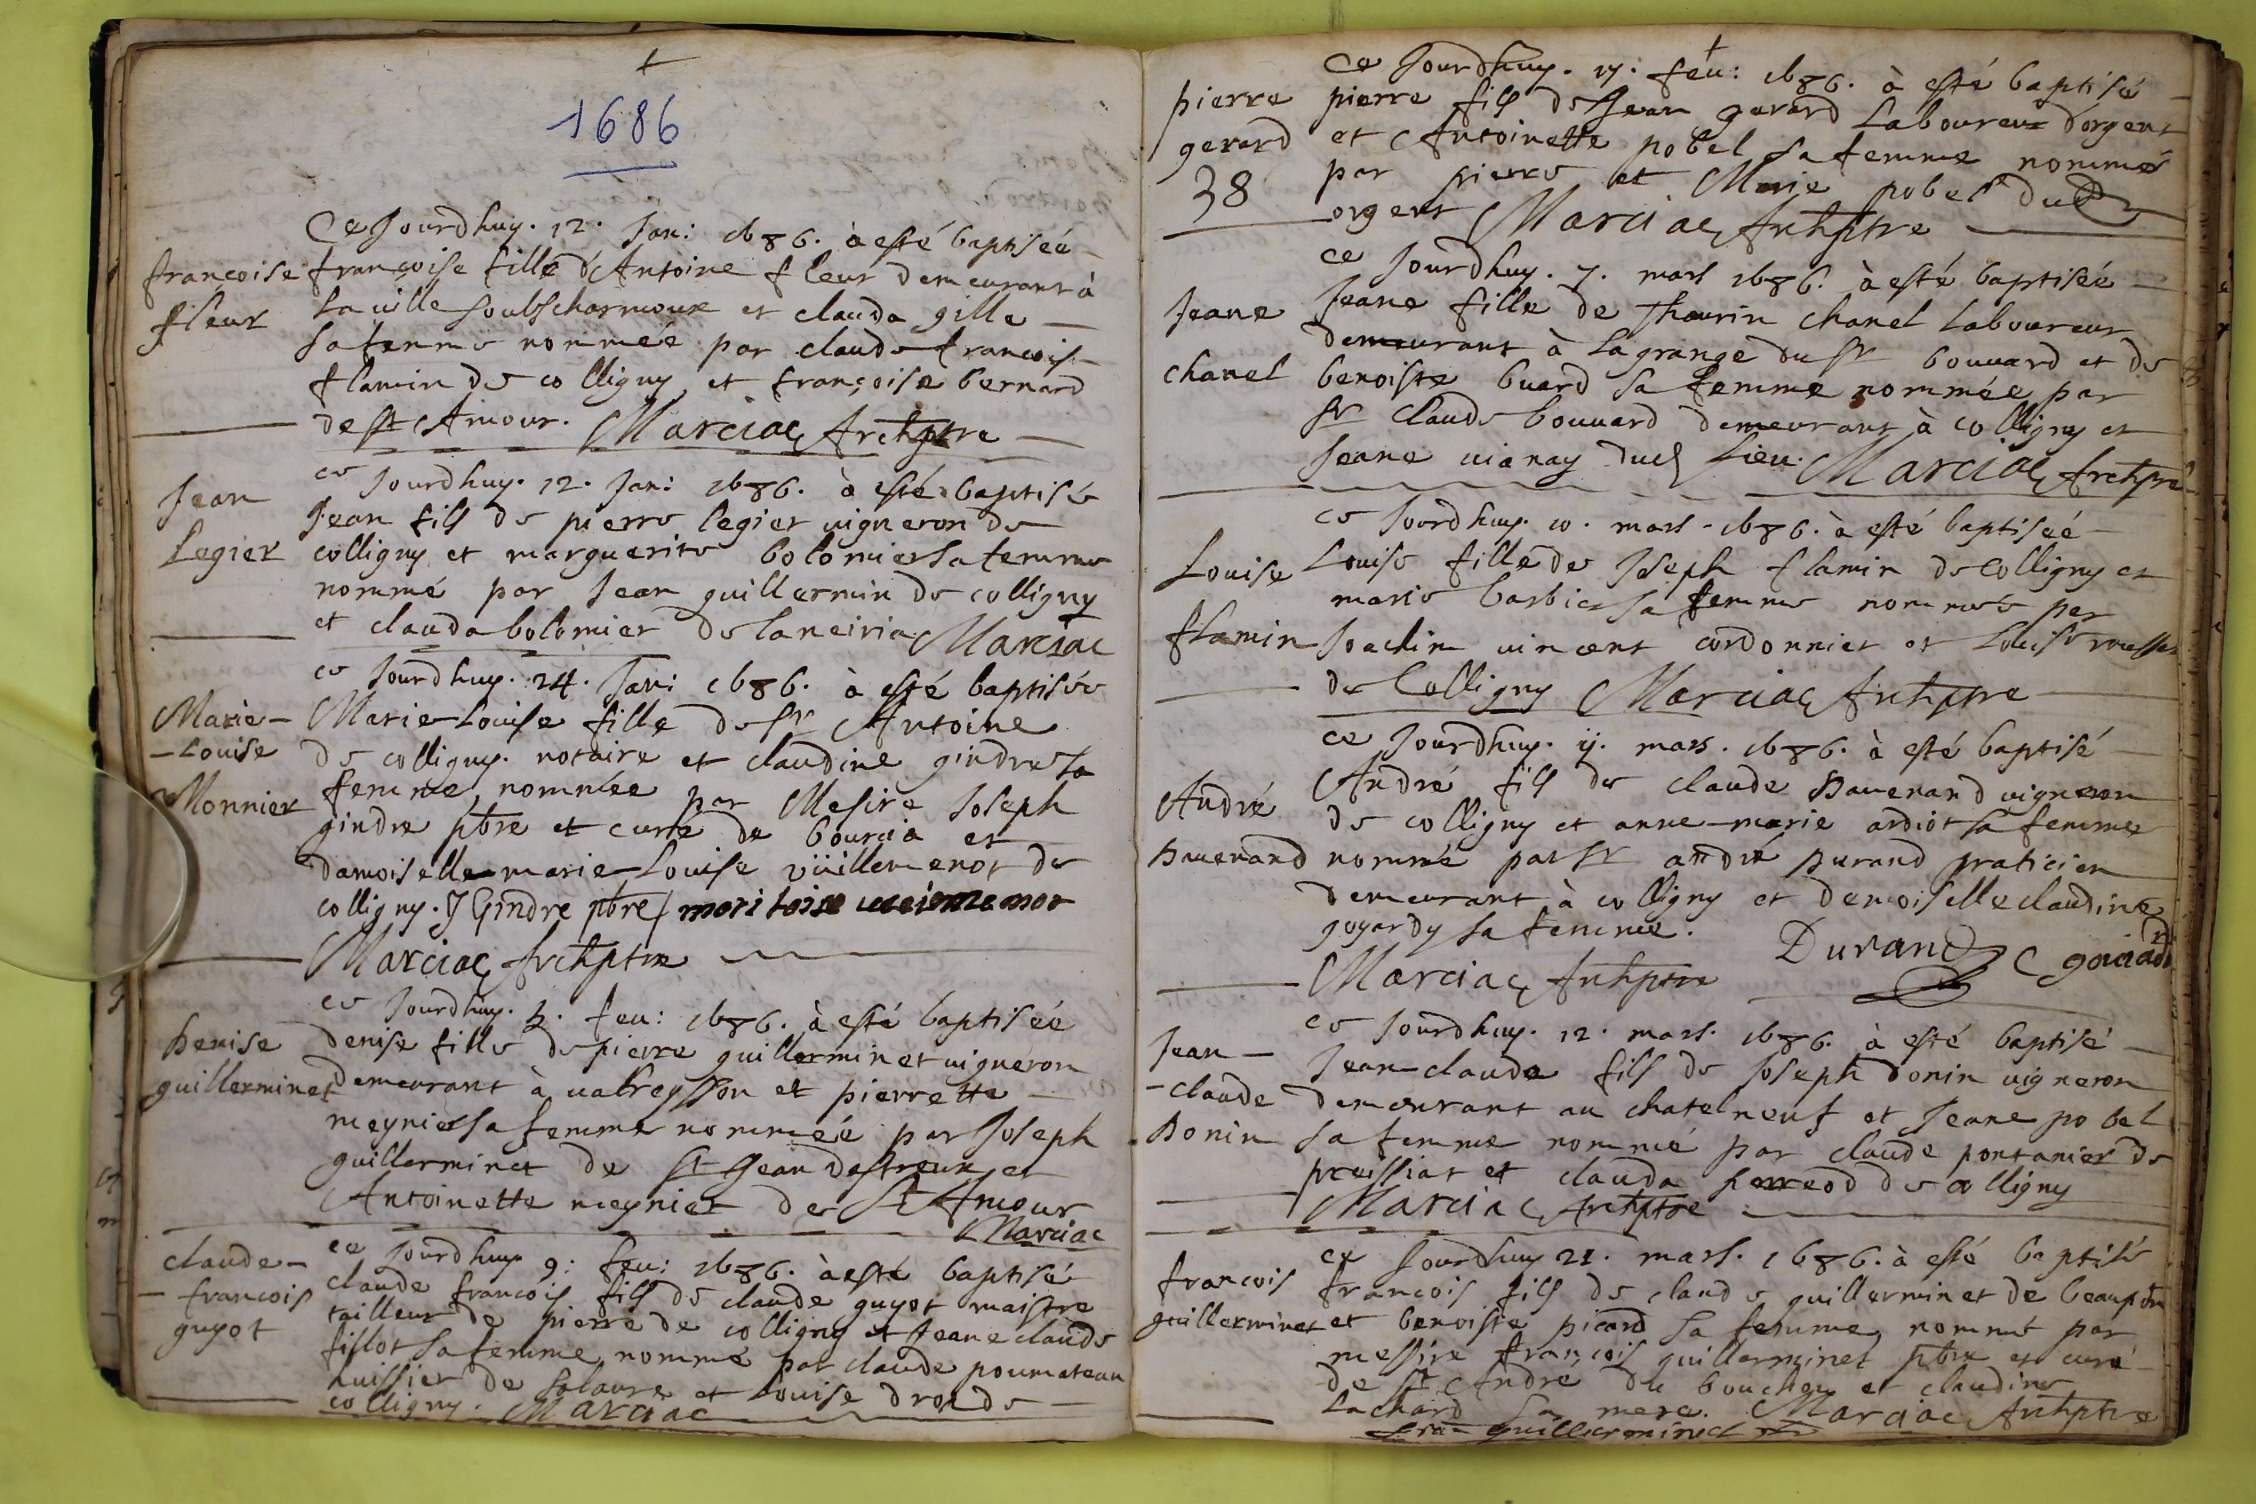 1686
Ce Jourdhuy. 12. Jan: 1686. à esté baptiseé
francoise françoise fille d'Antoine fleur demeurant à
fleur La uille soubscharmoux et clauda gille
sa femme nommeé par claude francois
flamin de colligny et françoise bernard
de st Amour. Marciac Archptre
ce Jourdhuy. 12. Jan: 1686. à esté baptisé
Jean Jean fils de pierre legier uigneron de
Legier colligny et marguerite bolomier sa femme
nommé par Jean guillermin de colligny
et clauda bolomier de laneiria Marciac
ce Jourdhuy. 24. Jan: 1686. à esté baptisée
Marie- Marie Louise fille de sr Antoine
-Louise de colligny. notaire et claudine gindre sa
Monnier femme nommée par Mesire Joseph
gindre ptre et curé de bourcia et
damoiselle marie Louise vüillemenot de
colligny. J Gindre ptre
Marciac Archptre
ce Jourdhuy. feu: 1686. à esté baptiseé
Denise denise fille de pierre guillerminet uigneron
guillerminet demeurant à ualfreysson et pierrette
meynier sa femme nommeé par Joseph
guillerminet de st Jean destreux et
Antoinette meynier de St Amour
Marciac
claude- ce Jourdhuy 9: feu: 1686. à esté baptisé
-francois claude francois fils de claude guyot maistre
guyot tailleur de pierre de colligny et Jeane claude
fillot sa femme nommé par claude poumateau
huissier de salaure et Louise droude
colligny. Marciac
Ce Jourdhuy. 17. feu: 1686. à esté baptisé
pierre pierre fils de Jean gerard Laboureur d'orgent
gerard et Antoinette pobel sa femme nommé
38 par pierre et Marie pobel dud
orgent Marciac Archptre
ce Jourdhuy. 7. mars 1686. à esté baptiseé
Jeane Jeane fille de Thaurin chanel laboureur
demeurant à La grange du sr bouuard et de
chanel benoiste buard sa femme nommée par
sr Claude bouuard demeurant à colligny et
Jeane uianay dud lieu. Marciac Archptre
ce Jourdhuy. 10. mars. 1686. à esté baptiseé
Louise Louise fille de Joseph flamin de Colligny et
marie barbier sa femme nommeé par
flamin Joachim uincent cordonnier et Louise rousset
de Colligny Marciac Archptre
ce Jourdhuy. 11. mars. 1686. à esté baptisé
André André fils de claude Dauenand uigneron
de colligny et anne-marie ardiot sa femme
Dauenand nommé par sr andré Durand praticien
demeurant à colligny et demoiselle claudine
goyardy sa femme. Durand C goiard
Marciac Archptre
ce Jourdhuy. 12. mars. 1686. à esté baptisé
Jean- Jean-claude fils de Joseph donin uigneron
-claude demeurant au chatelneuf et Jeane pobel
Donin sa femme nommé par claude pontanier de
pressiat et clauda perreod de colligny
Marciac Archptre
ce Jourdhuy 21. mars. 1686. à esté baptisé
francois francois fils de claude guillerminet de beaupont
guillerminet et benoiste picard sa femme nommé par
messire françois guillerminet ptre et curé
de st André du bouchoux et claudine
Lachard sa mere. Marciac Archptre
fra guillerminet